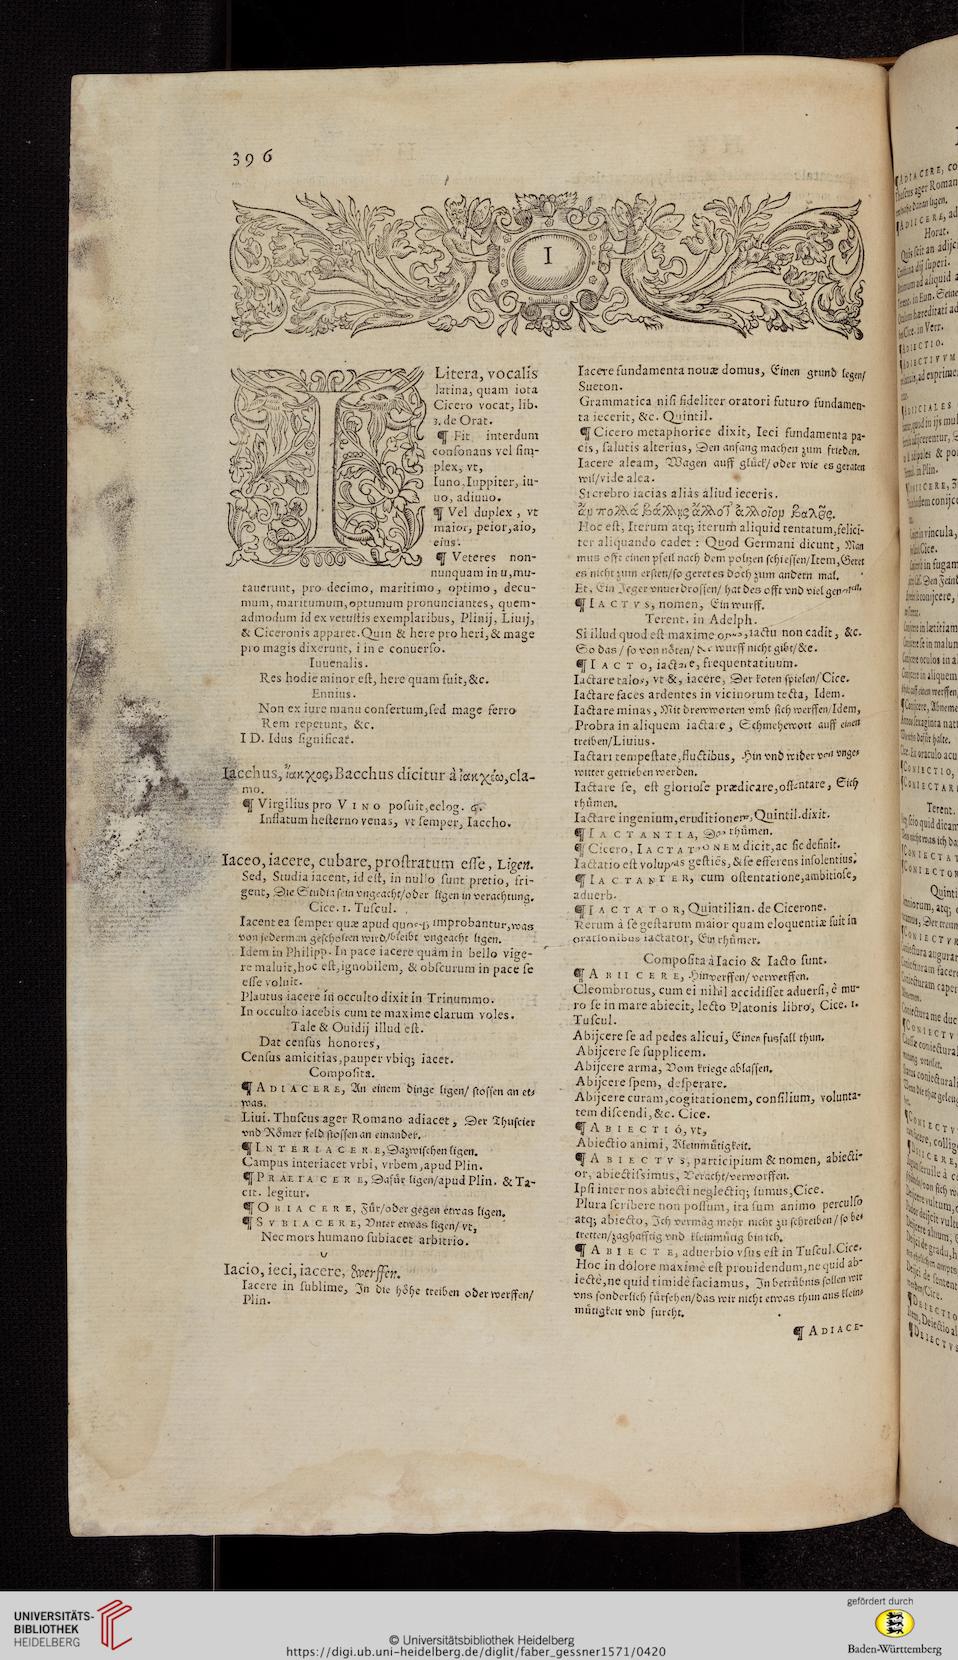 396
I
Litera, vocalis
latina, quam iota
Cicero vocat, lib.
3. de Orat.
¶ Fit interdum
consonans vel sim-
plex, vt,
Iuno, Iuppiter, iu-
uo, adiuuo.
¶ Vel duplex, vt
maior, peior, aio,
eius.
¶ Veteres non-
nunquam in u, mu-
tauerunt, pro decimo, maritimo, optimo, decu-
mum, maritumum, optumum pronunciantes, quem-
admodum id ex vetustis exemplaribus, Plinij, Liuij,
& Ciceronis apparet. Quin & here pro heri, & mage
pro magis dixerunt, i in e conuerso.
Iuuenalis.
Res hodie minor est, here quam fuit, &c.
Ennius.
Non ex iure manu consertum, sed mage ferro
Rem repetunt, &c.
I D. Idus significat.
Iacchus, ἴακχος, Bacchus dicitur à ἰακχέω, cla-
mo.
¶ Virgilius pro V I N O posuit, eclog. 6.
Inflatum hesterno venas, vt semper, Iaccho.
Iaceo, iacere, cubare, prostratum esse, Ligen.
Sed, Studia iacent, id est, in nullo sunt pretio, fri-
gent, Die Studia sein vngeacht/oder ligen in verachtung.
Cice. 1. Tuscul.
Iacent ea semper quæ apud quosq; improbantur, was
von jederman gescholten wird/bleibt vngeacht ligen.
Idem in Philipp. In pace iacere quàm in bello vige-
re maluit, hoc est, ignobilem, & obscurum in pace se
esse voluit.
Plautus iacere in occulto dixit in Trinummo.
In occulto iacebis cum te maxime clarum voles.
Tale & Ouidij illud est.
Dat census honores,
Census amicitias, pauper vbiq; iacet.
Composita.
¶ A D I A C E R E, An einem dinge ligen/ stossen an et-
was.
Liui. Thuscus ager Romano adiacet, Der Thuscier
vnd Römer feld stossen an einander.
¶ I N T E R I A C E R E, Dazwischen ligen.
Campus interiacet vrbi, vrbem, apud Plin.
¶ P R AE I A C E R E, Dafür ligen/apud Plin. & Ta-
cit. legitur.
¶ O B I A C E R E, Für/oder gegen etwas ligen.
¶ S V B I A C E R E, Vnter etwas ligen/ vt,
Nec mors humano subiacet arbitrio.
Iacio, ieci, iacere, Werffen.
Iacere in sublime, In die höhe treiben oder werffen/
Plin.
Iacere fundamenta nouæ domus, Einen grund legen/
Sueton.
Grammatica nisi fideliter oratori futuro fundamen-
ta iecerit, &c. Quintil.
¶ Cicero metaphorice dixit, Ieci fundamenta pa-
cis, salutis alterius, Den anfang machen zum frieden.
Iacere aleam, Wagen auff glück/ oder wie es geraten
wil/vide alea.
Si crebro iacias aliàs aliud ieceris.
ἂν πολλὰ βάλλῃς ἄλλοτ' ἀλλοῖον βαλεῖς.
Hoc est, Iterum atq; iterum aliquid tentatum, felici-
ter aliquando cadet: Quod Germani dicunt, Man
mus offt einen pfeil nach dem poltzen schiessen/Item, Geret
es nicht zum ersten/so geret es doch zum andern mal.
Et, Ein Jeger vnuerdrossen/ hat des offt vnd viel genossen.
¶ I A C T V S, nomen, Ein wurff.
Terent. in Adelph.
Si illud quod est maxime opus, iactu non cadit, &c.
So das / so von nöten/ der wurff nicht gibt/&c.
¶ I A C T O, iactare, frequentatiuum.
Iactare talos, vt &, iacere, Der koten spielen/Cice.
Iactare faces ardentes in vicinorum tecta, Idem.
Iactare minas, Mit drewworten vmb sich werffen/Idem,
Probra in aliquem iactare, Schmehewort auff einen
treiben/Liuius.
Iactari tempestate, fluctibus, Hin vnd wider von vnge-
witter getrieben werden.
Iactare se, est gloriose prædicare, ostentare, Sich
rhümen.
Iactare ingenium, eruditionem, Quintil. dixit.
¶ I A C T A N T I A, Das rhümen.
¶ Cicero, I A C T A T I O N E M dicit, ac sic definit.
Iactatio est voluptas gestiēs, & se efferens insolentius.
¶ I A C T A N T E R, cum ostentatione, ambitiose,
aduerb.
¶ I A C T A T O R, Quintilian. de Cicerone.
Rerum à se gestarum maior quam eloquentiæ fuit in
orationibus iactator, Ein rhümer.
Composita à Iacio & Iacto sunt.
¶ A B I I C E R E, Hinwerffen/ verwerffen.
Cleombrotus, cum ei nihil accidisset aduersi, è mu-
ro se in mare abiecit, lecto Platonis libro, Cice. 1.
Tuscul.
Abijcere se ad pedes alicui, Einen fusfall thun.
Abijcere se supplicem.
Abijcere arma, Vom kriege ablassen.
Abijcere spem, desperare.
Abijcere curam, cogitationem, consilium, volunta-
tem discendi, &c. Cice.
¶ A B I E C T I O, vt,
Abiectio animi, Kleinmütigkeit.
¶ A B I E C T V S, participium & nomen, abiecti-
or, abiectissimus, Veracht/verworffen.
Ipsi inter nos abiecti neglectiq; sumus, Cice.
Plura scribere non possum, ita sum animo perculso
atq; abiecto, Ich vermag mehr nicht zu schreiben / so be-
tretten/zaghafftig vnd kleinmütig bin ich.
¶ A B I E C T E, aduerbio vsus est in Tuscul. Cice.
Hoc in dolore maximè est prouidendum, ne quid ab-
iectè, ne quid timidè faciamus, In betrübnis sollen wir
vns sonderlich fürsehen/das wir nicht etwas thun aus klein-
mütigkeit vnd furcht.
¶ A D I A C E-
UNIVERSITÄTS-
BIBLIOTHEK
HEIDELBERG
© Universitätsbibliothek Heidelberg
https://digi.ub.uni-heidelberg.de/diglit/faber_gessner1571/0420
gefördert durch
Baden-Württemberg